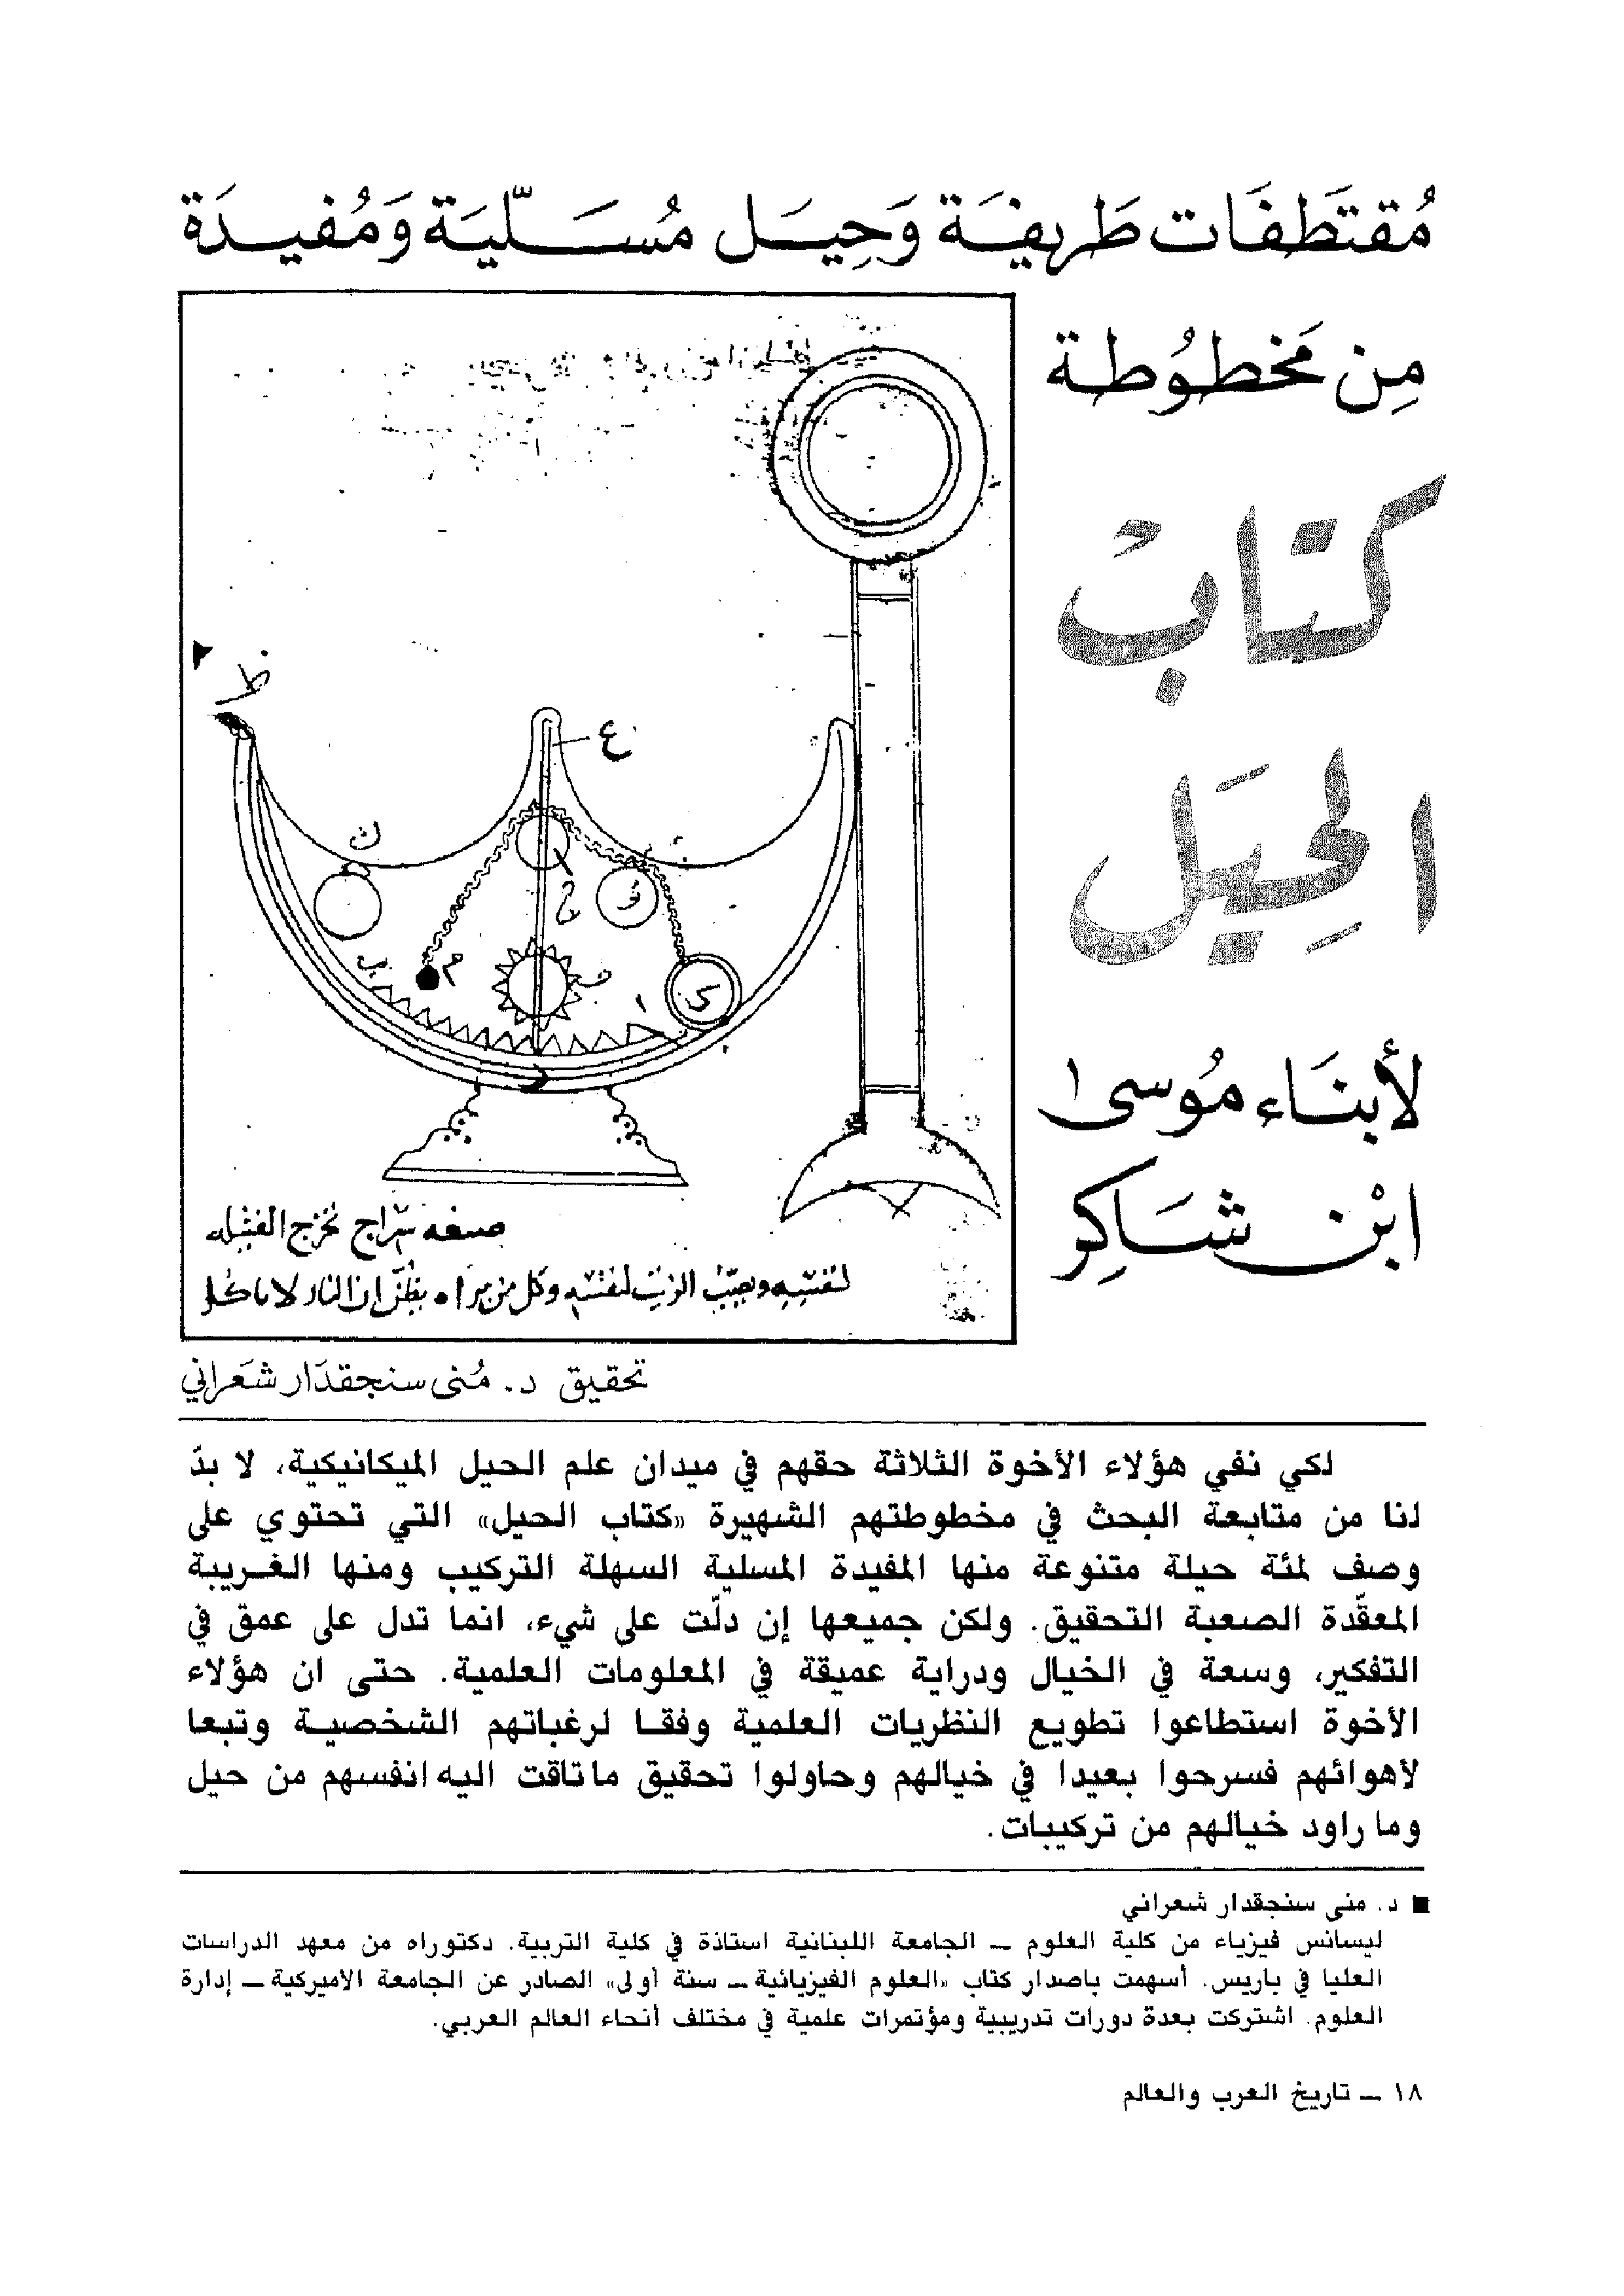 مُقتَطَفَات طَريفَة وَحِيَل مُسَلّيَة وَمُفيدَة
مِن مَخطُوطة
كتابْ
الحِيَل
لأبنَاء مُوسى
ابْن شَاكِر
ظ
ع
ن
ح
م
ص
ك
صنعه سراج تخرج الفتيله
لنفسه ويصب الزيت لنفسه وكل من يراه يظن ان النار لا تاكل
تحقيق د. مُنى سنجقدَار شعَراني
لكي نفي هؤلاء الأخوة الثلاثة حقهم في ميدان علم الحيل الميكانيكية، لا بدّ
لنا من متابعة البحث في مخطوطتهم الشهيرة «كتاب الحيل» التي تحتوي على
وصف لمئة حيلة متنوعة منها المفيدة المسلية السهلة التركيب ومنها الغريبة
المعقّدة الصعبة التحقيق. ولكن جميعها إن دلّت على شيء، انما تدل على عمق في
التفكير، وسعة في الخيال ودراية عميقة في المعلومات العلمية. حتى ان هؤلاء
الأخوة استطاعوا تطويع النظريات العلمية وفقا لرغباتهم الشخصية وتبعا
لأهوائهم فسرحوا بعيدا في خيالهم وحاولوا تحقيق ما تاقت اليه انفسهم من حيل
وما راود خيالهم من تركيبات.
■ د. منى سنجقدار شعراني
ليسانس فيزياء من كلية العلوم – الجامعة اللبنانية استاذة في كلية التربية. دكتوراه من معهد الدراسات
العليا في باريس. أسهمت باصدار كتاب «العلوم الفيزيائية – سنة أولى» الصادر عن الجامعة الاميركية – إدارة
العلوم. اشتركت بعدة دورات تدريبية ومؤتمرات علمية في مختلف أنحاء العالم العربي.
١٨ – تاريخ العرب والعالم